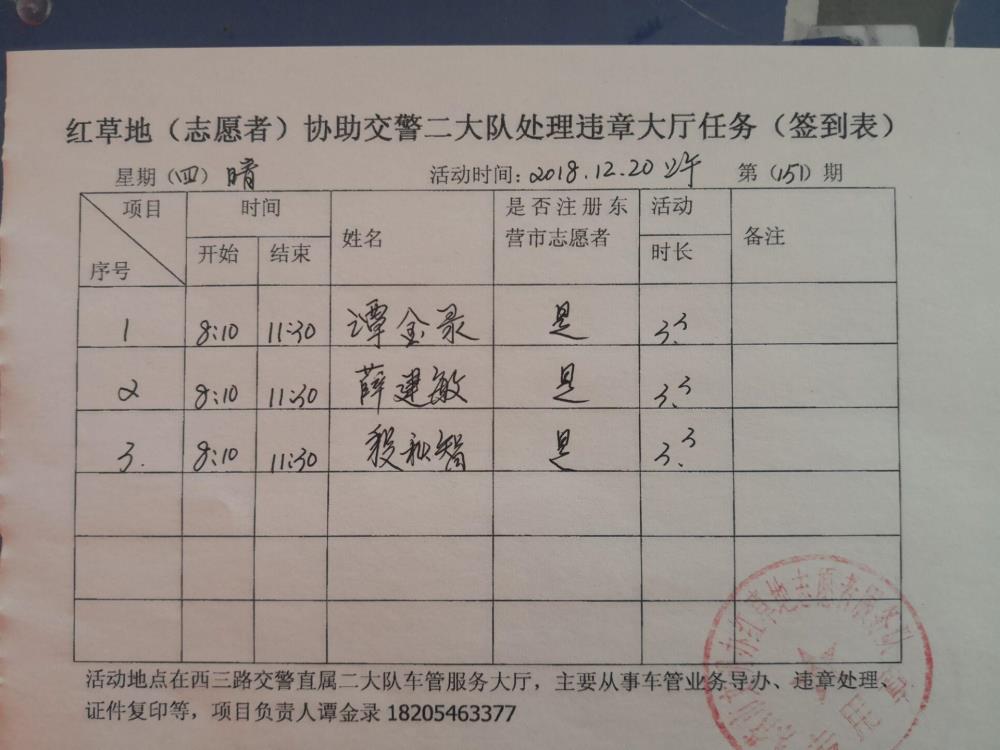 红草地（志愿者）协助交警二大队处理违章大厅任务（签到表）
星期（四）晴 活动时间：2018.12.20上午 第（151）期
项目 时间 姓名 是否注册东 活动 备注
营市志愿者
开始 结束 时长
序号
1 8:10 11:30 谭金录 是 3.3
2 8:10 11:30 薛建敏 是 3.3
3. 8:10 11:30 是 3.3
红草地志愿者服务队
活动地点在西三路交警直属二大队车管服务大厅，主要从事车管业务导办、违章处理、
证件复印等，项目负责人谭金录 18205463377